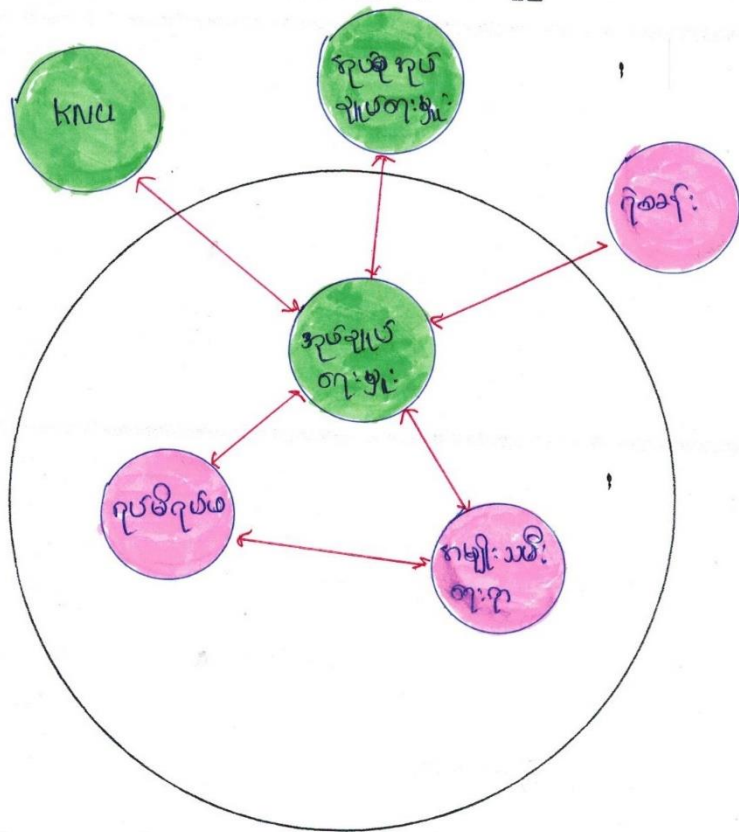 KNU
အုပ်စုအုပ်
ချုပ်ရေးမှူး
ရဲစခန်း
အုပ်ချုပ်
ရေးမှူး
ရပ်မိရပ်ဖ
အမျိုးသမီး
ရေးရာ